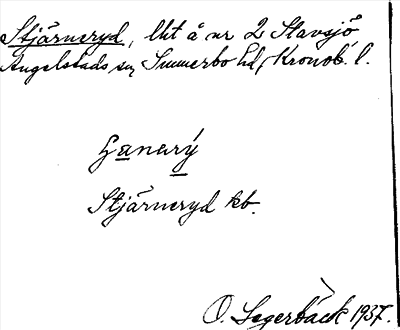 Stjärneryd, lht å nr 2 Stavsjö
Angelstads sn, Sunnerbo hd, Kronob. l.
Stjärneryd kb.
O. Segerbäck 1937.